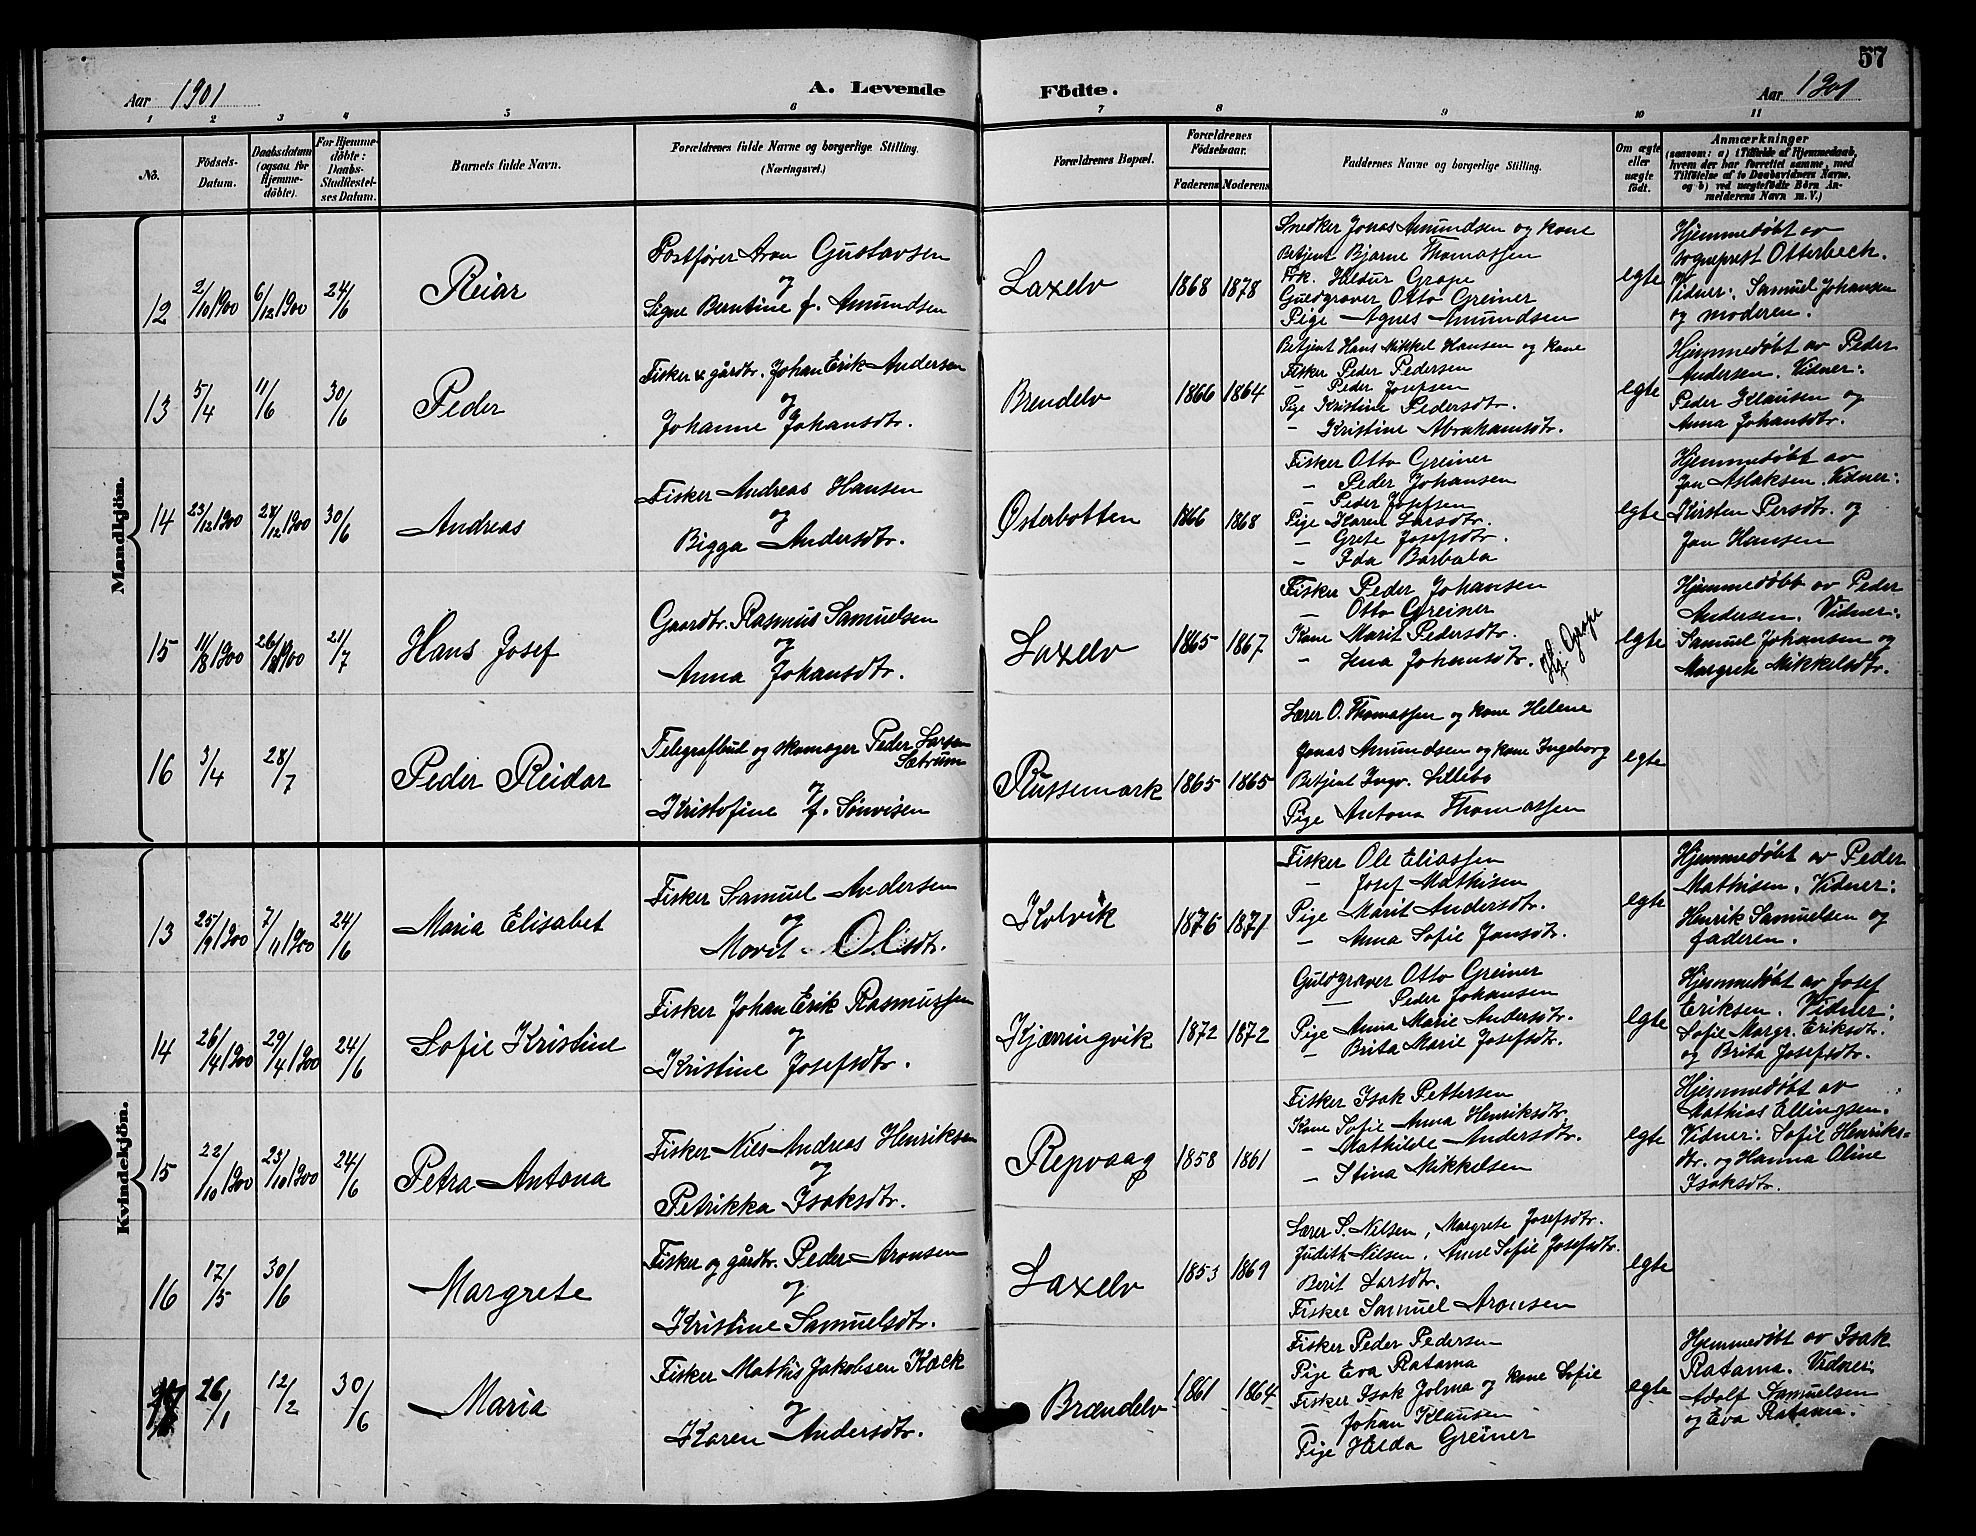 57
Aar 1901
A. Levende Födte.
Aar 1901
1 2 3 4 5 6 7 8 9 10 11
No.
Födsels-Datum.
Daabsdatum (ogsaa for Hjemme-döbte).
For Hjemme-döbte: Daabs-Stadfæstel-ses Datum.
Barnets fulde Navn.
Forældrenes fulde Navne og borgerlige Stilling. (Næringsvei.)
Forældrenes Bopæl.
Forældrenes Födselsaar.
Faderens Moderens
Faddernes Navne og borgerlige Stilling.
Om ægte eller uægte födt.
Anmærkninger
(saasom: a) i Tilfælde af Hjemmedaab, hvem der har forrettet samme, med Tilföielse af to Daabsvidners Navne, og b) ved uægtefödte Börn An-melderens Navn m. V.)
Mandkjön.
12
2/10 1900
6/12 1900
24/6
Reiar
Postfører Aron Gustavsen
og
Signe Berntine f. Amundsen
Laxelv
1868 1878
Snedker Jonas Amundsen og kone
Betjent Bjarne Thomassen
Frk. Hildur Grape
Guldgraver Otto Greiner
Pige Agnes Amundsen
egte
Hjemmedøbt av
sogneprest Otterbech.
Vidner: Samuel Johansen
og moderen.
13
5/4
11/6
30/6
Peder
Fisker & gårdbr. Johan Erik Andersen
og
Johanne Johansdtr.
Brendelv
1866 1864
Betjent Hans Mikkel Hansen og kone
Fisker Peder Pedersen
– Peder Josefsen
Pige Kristine Pedersdtr.
– Kristine Abrahamsdtr.
egte
Hjemmedøbt av Peder
Andersen. Vidner:
Peder Klausen og
Anna Johansdtr.
14
23/12 1900
24/12 1900
30/6
Andreas
Fisker Andreas Hansen
og
Bigga Andersdtr.
Østerbotten
1866 1868
Fisker Otto Greiner
– Peder Johansen
– Peder Josefsen
Pige Karen Larsdtr.
– Grete Josefsdtr.
– Ida Barbala
egte
Hjemmedøbt av
Jon Aslaksen. Vidner:
Kirsten Persdtr. og
Jon Hansen
15
11/8 1900
26/8 1900
21/7
Hans Josef
Gaardbr. Rasmus Samuelsen
og
Anna Johansdtr.
Laxelv
1865 1867
Fisker Peder Johansen
– Otto Greiner
Kone Marit Pedersdtr.
– Lena Johansdtr.
Hj. Grape
egte
Hjemmedøbt av Peder
Andersen. Vidner:
Samuel Johansen og
Margrete Mikkelsdtr.
16
3/4
28/7
Peder Reidar
Telegrafbud og skomager Peder Larsen
Sætrum
og
Kristofine f. Sønvisen
Russemark
1865 1865
Lærer O. Thomassen og kone Helene
Jonas Amundsen og kone Ingeborg
Betjent Ingv. Lillebo
Pige Antona Thomassen
egte
Kvindekjön.
13
25/9 1900
7/11 1900
24/6
Maria Elisabet
Fisker Samuel Andersen
og
Marit Olsdtr.
Kolvik
1876 1871
Fisker Ole Eliassen
– Josef Mathisen
Pige Marit Andersdtr.
– Anna Sofie Jonsdtr.
egte
Hjemmedøbt av Peder
Mathisen. Vidner:
Henrik Samuelsen og
faderen.
14
26/4 1900
29/4 1900
24/6
Sofie Kristine
Fisker Johan Erik Rasmussen
og
Kristine Josefsdtr.
Kjærringvik
1872 1872
Guldgraver Otto Greiner
– Peder Johansen
Pige Anna Marie Andersdtr.
– Brita Marie Josefsdtr.
egte
Hjemmedøbt av Josef
Eriksen. Vidner:
Sofie Margr. Eriksdtr.
og Brita Josefsdtr.
15
22/10 1900
23/10 1900
24/6
Petra Antona
Fisker Nils Andreas Henriksen
og
Petrikka Isaksdtr.
Repvaag
1858 1861
Fisker Isak Pettersen
Kone Sofie Anna Henriksdtr.
– Mathilde Andersdtr.
– Stina Mikkelsen
egte
Hjemmedøbt av
Mathias Ellingsen.
Vidner: Sofie Henriks-
dtr. og Hanna Oline
Isaksdtr.
16
17/5
30/6
Margrete
Fisker og gårdbr. Peder Aronsen
og
Kristine Samuelsdtr.
Laxelv
1853 1869
Lærer S. Nilsen, Margrete Josefsdtr.
Judith Nilsen. Anne Sofie Josefsdtr.
Berit Larsdtr.
Fisker Samuel Aronsen
egte
17
26/1
12/2
30/6
Maria
Fisker Mathis Jakobsen Kæck
og
Karen Andersdtr.
Brændelv
1861 1864
Fisker Peder Pedersen
Pige Eva Ratama
Fisker Isak Jolma og kone Sofie
– Johan Klausen
Pige Hilda Greiner
egte
Hjemmedøbt av Isak
Ratama. Vidner:
Adolf Samuelsen
og Eva Ratama.